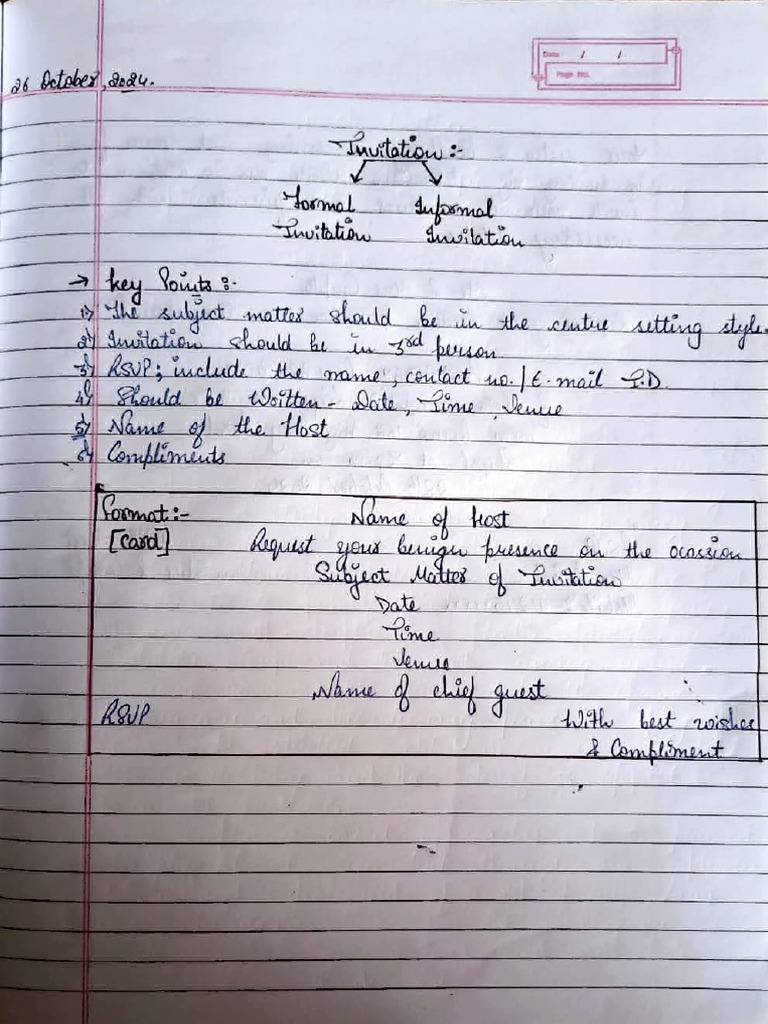 Date / /
Page No.
26 October, 2024.
Invitation :-
Formal Informal
Invitation Invitation
→ Key Points :-
1) The subject matter should be in the centre setting style.
2) Invitation should be in 3rd person
3) RSVP; include the name, contact no./E-mail I.D.
4) Should be Written - Date, Time, Venue
5) Name of the Host
6) Compliments
Format :- Name of Host
[Card] Request your benign presence on the ocassion
Subject Matter of Invitation
Date
Time
Venue
Name of chief guest
RSVP With best wishes
& Compliment